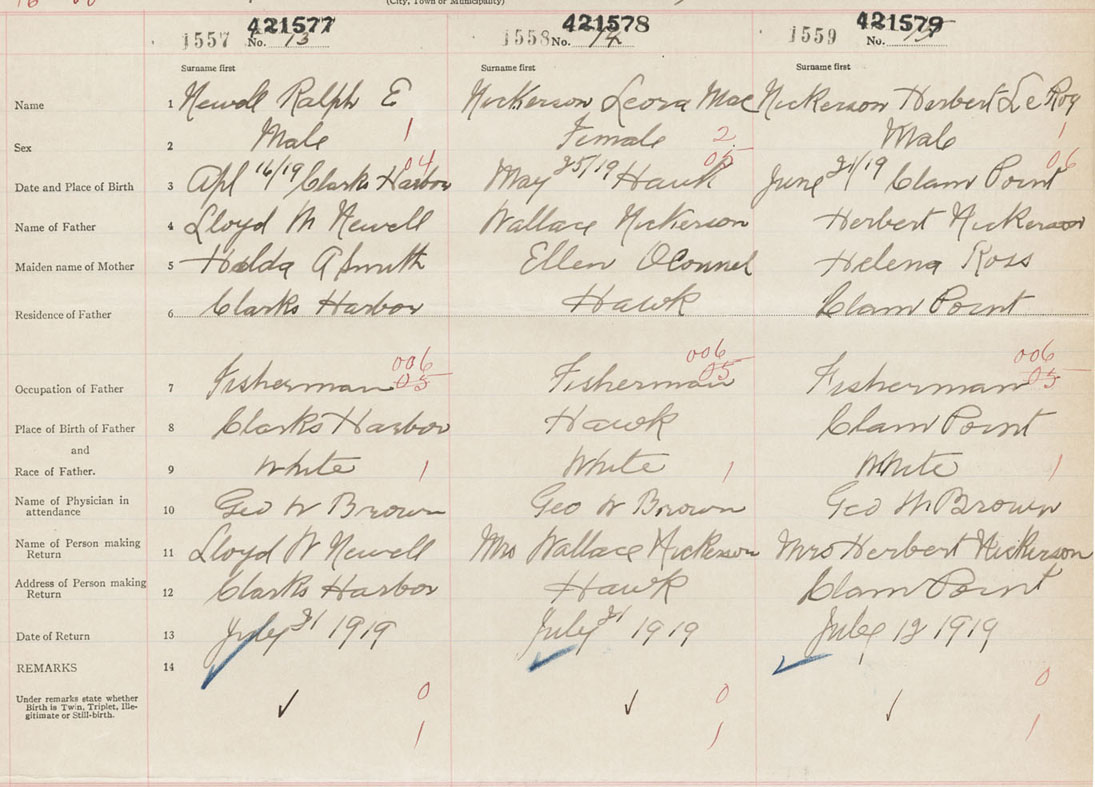 (City, Town or Municipality)
421577 421578 421579
1557 No. 13 1558 No. 14 1559 No. 15
Surname first Surname first Surname first
Name 1 Newell Ralph E Nickerson Leora Mae Nickerson Herbert LeRoy
Sex 2 Male 1 Female 2 Male 1
04 05 06
Date and Place of Birth 3 Apl 16/19 Clarks Harbor May 25/19 Hawk June 21/19 Clam Point
Name of Father 4 Lloyd M Newell Wallace Nickerson Herbert Nickerson
Maiden name of Mother 5 Hilda A Smith Ellen OConnel Helena Ross
Residence of Father 6 Clarks Harbor Hawk Clam Point
006 006 006
Occupation of Father 7 Fisherman 05 Fisherman 05 Fisherman 05
Place of Birth of Father 8 Clarks Harbor Hawk Clam Point
and
Race of Father. 9 White 1 White 1 White 1
Name of Physician in
attendance 10 Geo W Brown Geo W Brown Geo W Brown
Name of Person making
Return 11 Lloyd W Newell Mrs Wallace Nickerson Mrs Herbert Nickerson
Address of Person making
Return 12 Clarks Harbor Hawk Clam Point
Date of Return 13 July 31 1919 July 31 1919 July 12 1919
REMARKS 14
Under remarks state whether
Birth is Twin, Triplet, Ille-
gitimate or Still-birth.
0 0 0
1 1 1